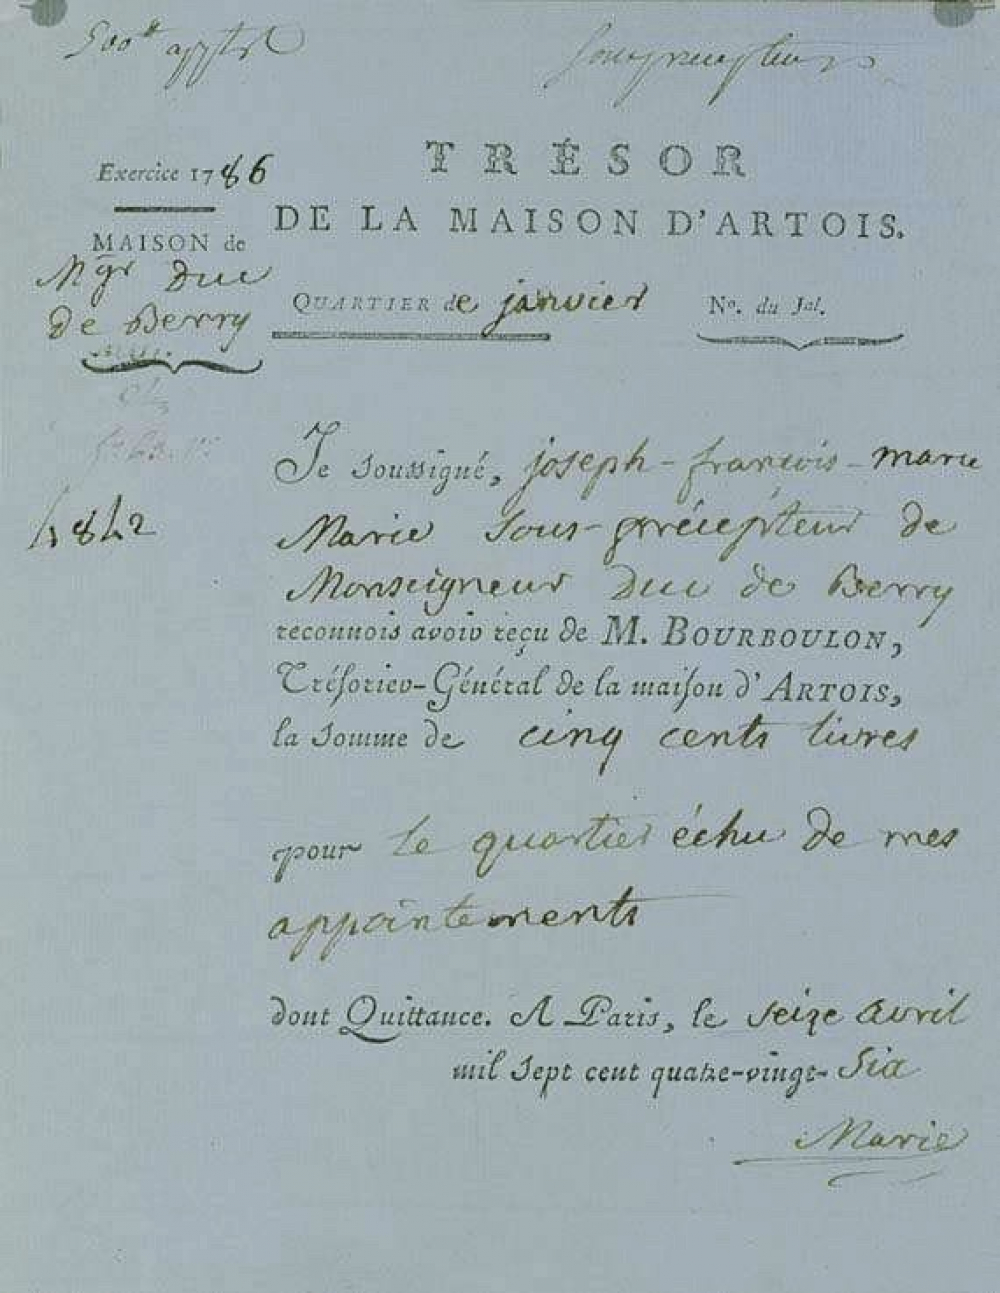 500tt appt
TRÉSOR
Exercice 1786
DE LA MAISON D'ARTOIS.
MAISON de
Mgr Duc
de Berry
QUARTIER de janvier
No. du Jal.
Je soussigné, joseph-francois-marie
Marie Sous-précepteur de
Monseigneur Duc de Berry
reconnois avoir reçu de M. BOURBOULON,
Trésorier-Général de la maison d'ARTOIS,
la somme de cinq cents livres
pour le quartier échu de mes
appointements
dont Quittance. A Paris, le seize avril
mil sept cent quatre-vingt-Six
Marie